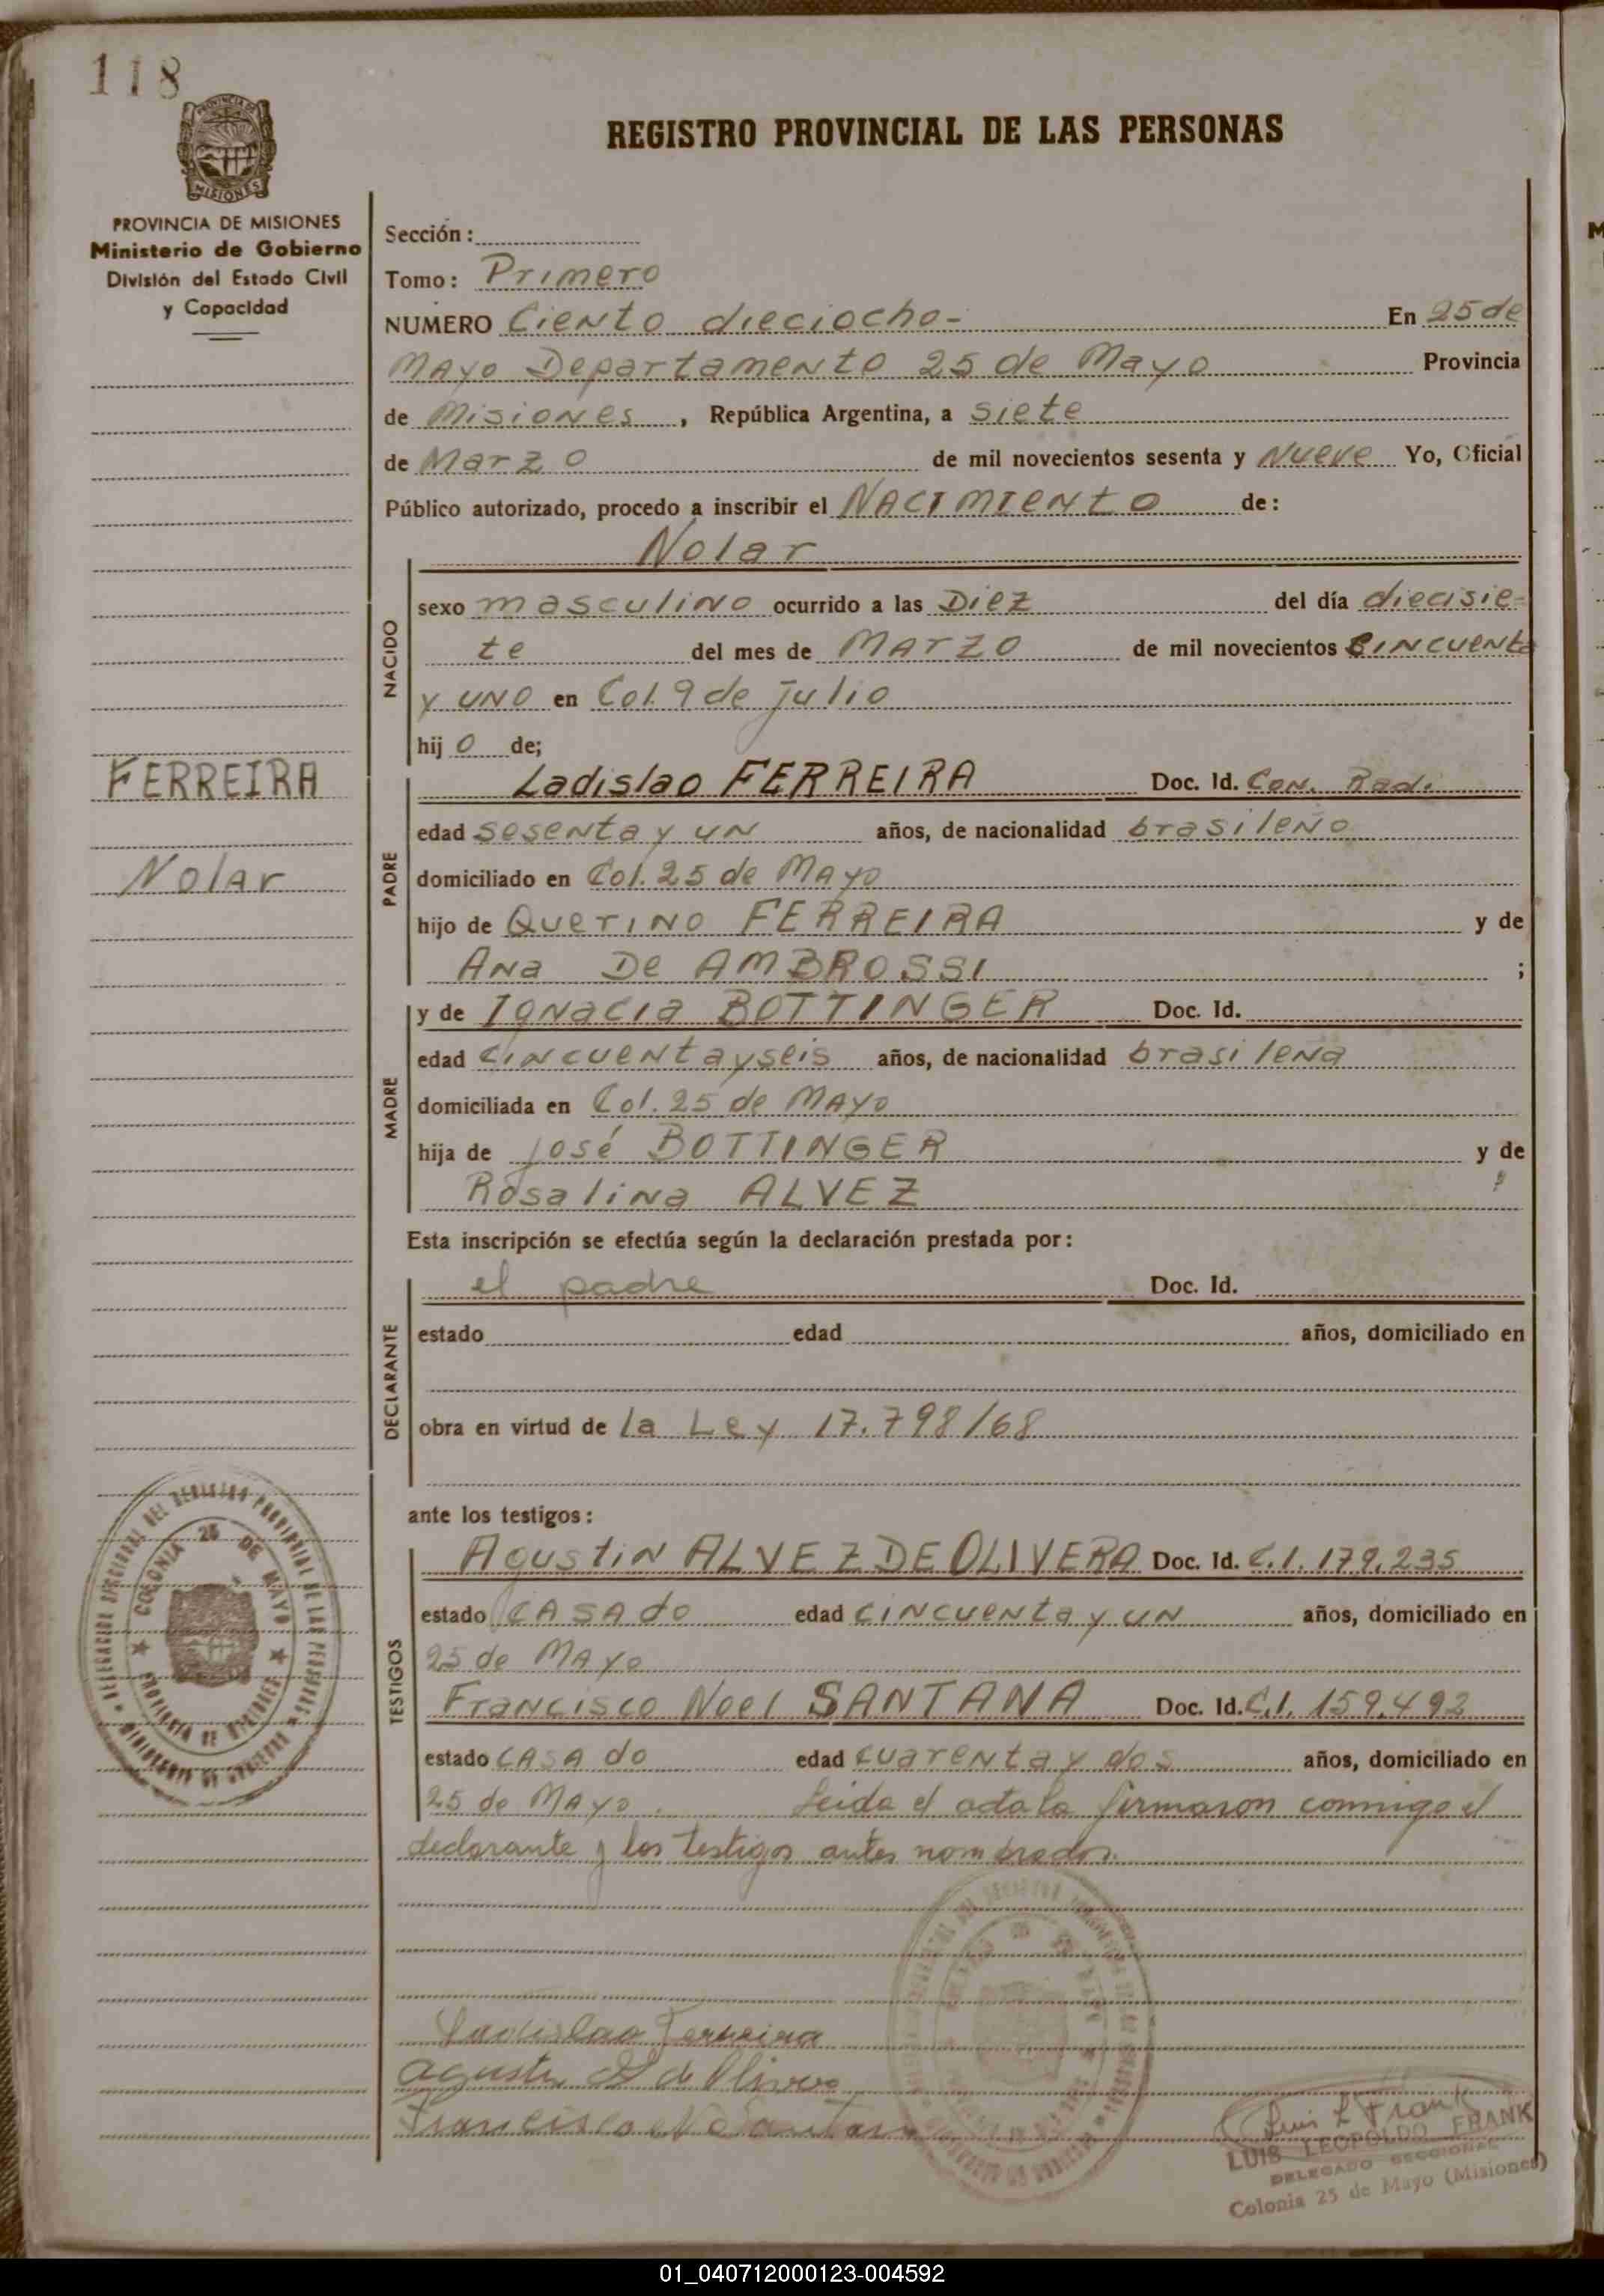 118
PROVINCIA DE MISIONES
Ministerio de Gobierno
División del Estado Civil
y Capacidad
REGISTRO PROVINCIAL DE LAS PERSONAS
Sección:
Tomo: Primero
NUMERO Ciento dieciocho- En 25 de
Mayo Departamento 25 de Mayo Provincia
de Misiones, República Argentina, a siete
de Marzo de mil novecientos sesenta y Nueve Yo, Oficial
Público autorizado, procedo a inscribir el NACIMIENTO de:
Nolar
NACIDO
sexo masculino ocurrido a las Diez del día diecisie-
te del mes de MARZO de mil novecientos CINCUENta
y UNO en Col. 9 de Julio
hij o de;
FERREIRA
Nolar
PADRE
Ladislao FERREIRA Doc. Id. Con. Radi.
edad sesenta y un años, de nacionalidad brasileño
domiciliado en Col. 25 de Mayo
hijo de Querino FERREIRA y de
Ana De AMBROSSI ;
MADRE
y de Ignacia BOTTINGER Doc. Id.
edad cincuenta y seis años, de nacionalidad brasileña
domiciliada en Col. 25 de Mayo
hija de José BOTTINGER y de
Rosalina ALVEZ ;
Esta inscripción se efectúa según la declaración prestada por:
DECLARANTE
el padre Doc. Id.
estado edad años, domiciliado en
obra en virtud de la Ley 17.798/68
ante los testigos:
TESTIGOS
Agustin ALVEZ DE OLIVERA Doc. Id. C.I. 179.235
estado casado edad cincuenta y un años, domiciliado en
25 de Mayo
Francisco Noel SANTANA Doc. Id. C.I. 159.493
estado casado edad cuarenta y dos años, domiciliado en
25 de Mayo. Leida el acta la firmaron conmigo el
declarante y los testigos antes nombrados.
COLONIA 25 DE MAYO
PROVINCIA DE MISIONES
Ladislao Ferreira
Agustin A de Olivera
Francisco N Santana
Luis L Frank
LUIS LEOPOLDO FRANK
DELEGADO SECCIONAL
Colonia 25 de Mayo (Misiones)
01_040712000123-004592